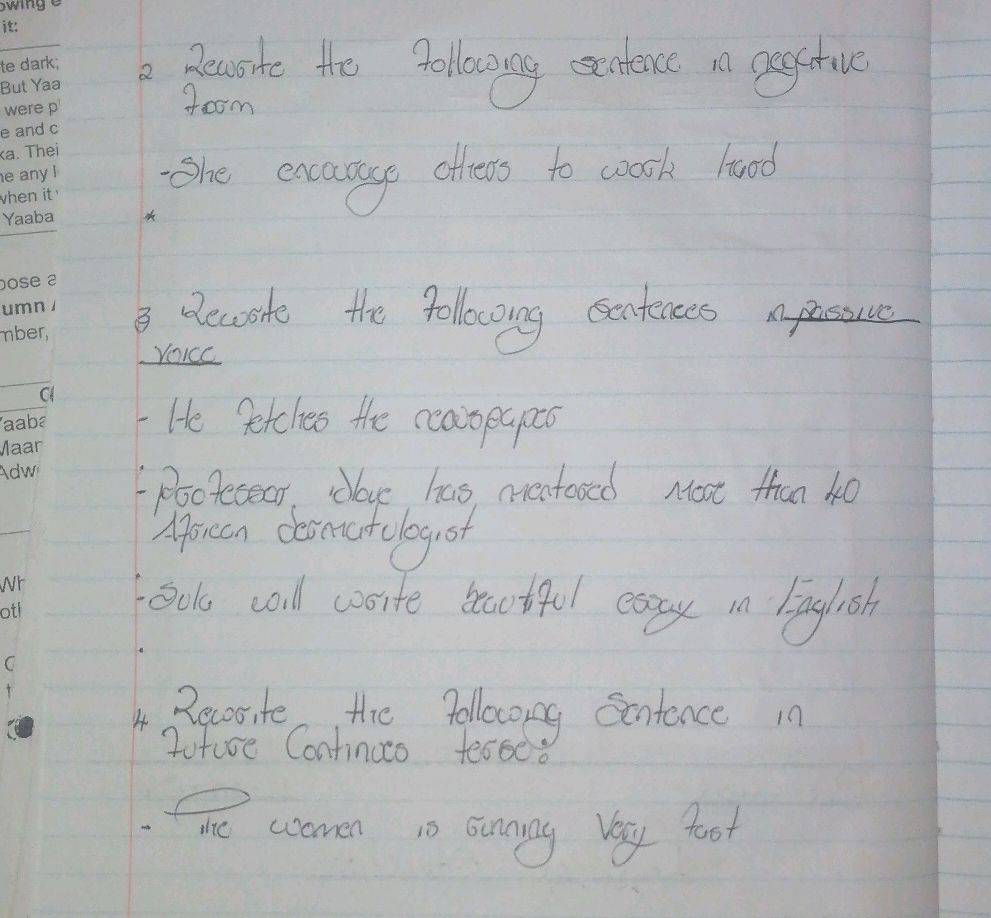 owing e
it:
te dark;
But Yaa
were p
e and c
ka. Thei
ne any l
when it
Yaaba
oose a
umn
mber,
Cl
Yaaba
Maar
Adw
Wh
otl
2 Rewrite the following sentence in negative
form
-She encourage others to work hard
*
3 Rewrite the following sentences in passive
voice
- He fetches the newspaper
- Professor has mentored more than 40
African dermatologist
- Sula will write beautiful essay in English
4 Rewrite the following Sentence in
future Continues tense:
- The women is running Very fast